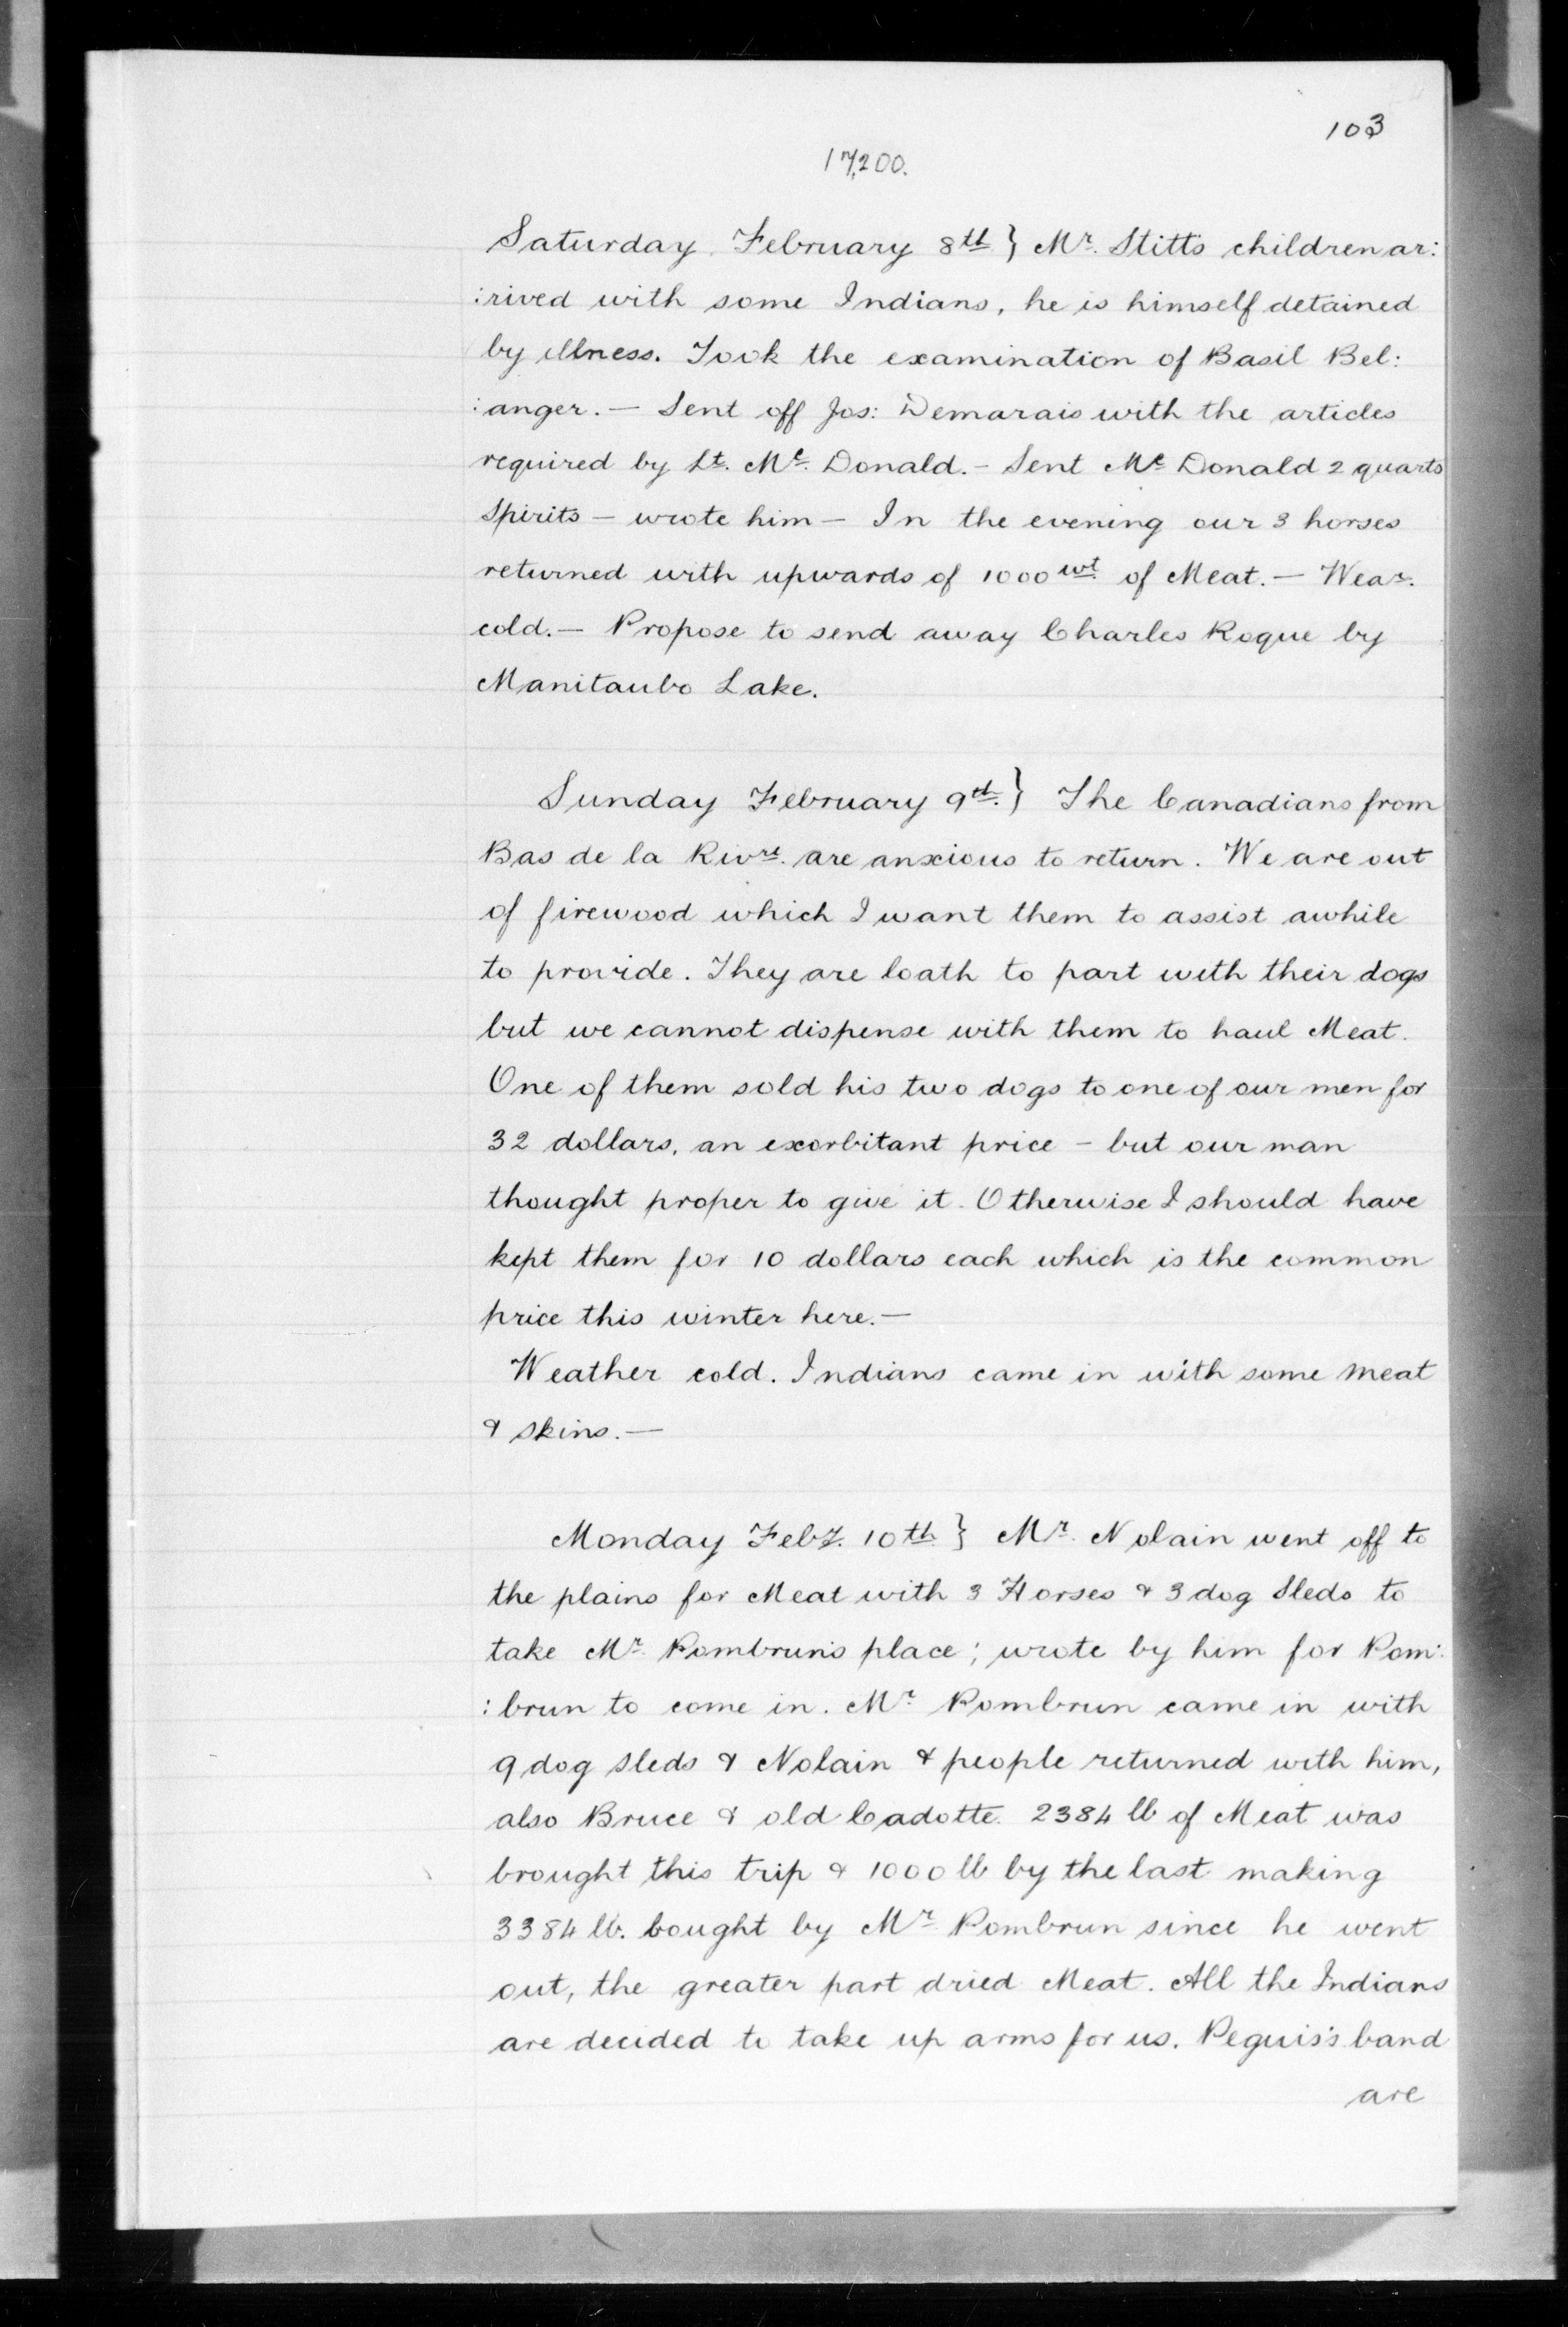 103
17,200.
Saturday February 8th } Mr. Stitts children ar:
:rived with some Indians, he is himself detained
by illness. Took the examination of Basil Bel:
:anger. — Sent off Jos: Demarais with the articles
required by Lt. Mc. Donald. — Sent Mc Donald 2 quarts
Spirits — wrote him — In the evening our 3 horses
returned with upwards of 1000 wt. of Meat. — Wear.
cold. — Propose to send away Charles Roque by
Manitaubo Lake.
Sunday February 9th. } The Canadians from
Bas de la Rivre. are anxious to return. We are out
of firewood which I want them to assist awhile
to provide. They are loath to part with their dogs
but we cannot dispense with them to haul Meat.
One of them sold his two dogs to one of our men for
32 dollars, an exorbitant price — but our man
thought proper to give it. Otherwise I should have
kept them for 10 dollars each which is the common
price this winter here. —
Weather cold. Indians came in with some meat
& skins. —
Monday Feby. 10th } Mr. Nolain went off to
the plains for Meat with 3 Horses & 3 dog Sleds to
take Mr. Pombrun's place; wrote by him for Pom:
:brun to come in. Mr Pombrun came in with
9 dog sleds & Nolain & people returned with him,
also Bruce & old Cadotte. 2384 lb of Meat was
brought this trip & 1000 lb by the last making
3384 lb. bought by Mr Pombrun since he went
out, the greater part dried Meat. All the Indians
are decided to take up arms for us. Peguis's band
are